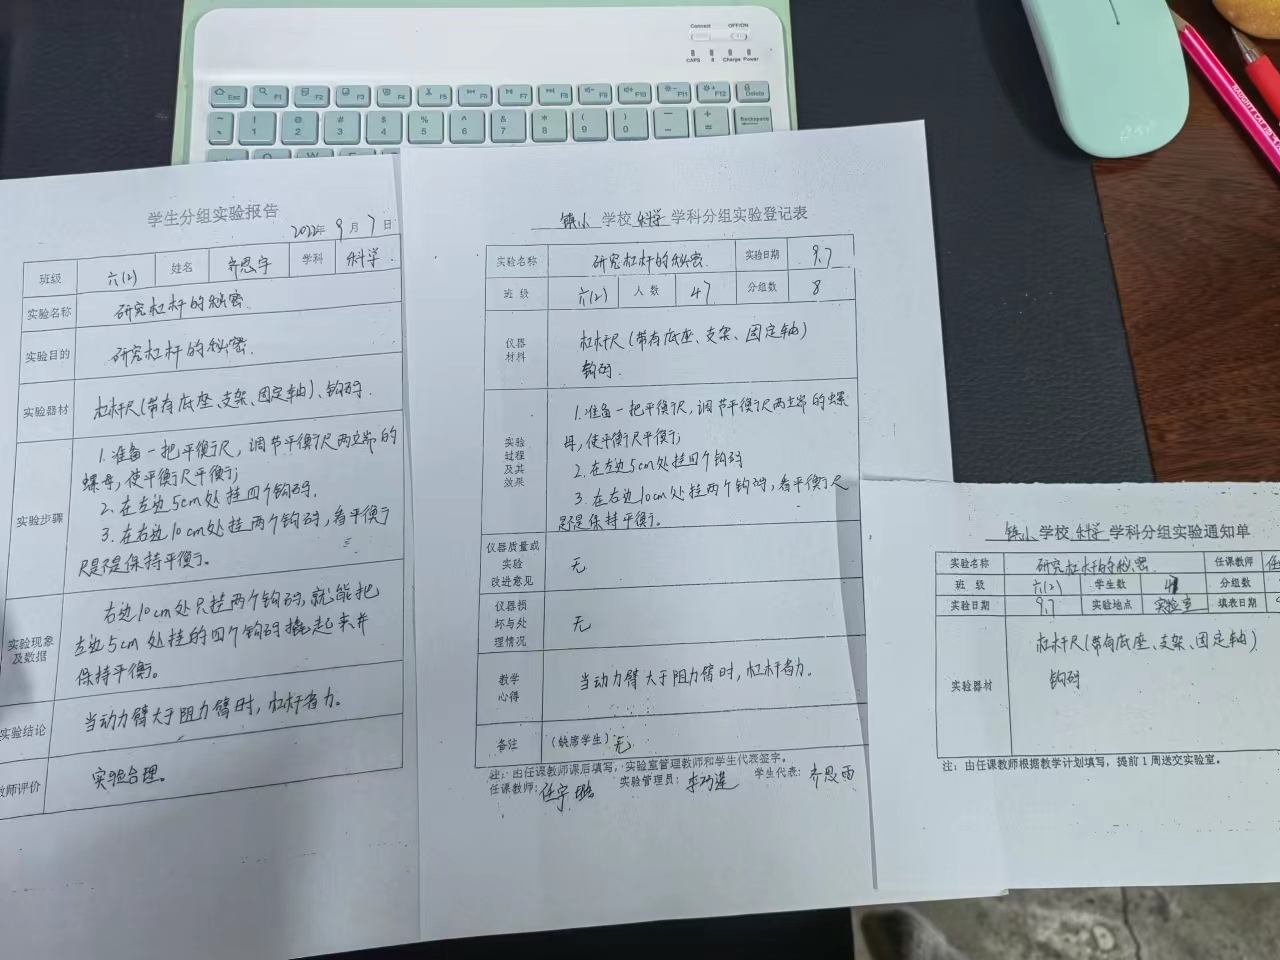 Connect OFF/ON
CAPS 8 Charge Power
Esc F1 F2 F3 F4 F5 F6 F7 F8 F9 F10 F11 F12 Delete
~ ! @ # $ % ^ & * ( ) — + Backspace
1 2 3 4 5 6 7 8 9 0 =
学生分组实验报告
2022年 9 月 7 日
班级 六(2) 姓名 学科 科学
实验名称 研究杠杆的秘密
实验目的 研究杠杆的秘密.
实验器材 杠杆尺(带有底座、支架、固定轴)、钩码.
实验步骤
1.准备一把平衡尺,调节平衡尺两端的
螺母,使平衡尺平衡;
2.在左边5cm处挂四个钩码.
3.在右边10cm处挂两个钩码,看平衡
尺是不是保持平衡。
实验现象及数据
右边10cm处只挂两个钩码,就能把
左边5cm处挂的四个钩码撬起来并
保持平衡。
实验结论 当动力臂大于阻力臂时,杠杆省力。
教师评价 实验合理。
镇小 学校 科学 学科分组实验登记表
实验名称 研究杠杆的秘密. 实验日期 9.7
班 级 六(2) 人 数 47 分组数 8
仪器材料
杠杆尺(带有底座、支架、固定轴)
钩码.
实验过程及其效果
1.准备一把平衡尺,调节平衡尺两端的螺
母,使平衡尺平衡;
2.在左边5cm处挂四个钩码
3.在右边10cm处挂两个钩码,看平衡尺
是不是保持平衡。
仪器质量或实验改进意见 无
仪器损坏与处理情况 无
教学心得 当动力臂大于阻力臂时,杠杆省力.
备注 (缺席学生) 无
注:由任课教师课后填写,实验室管理教师和学生代表签字。
任课教师: 任宇璐 实验管理员: 李巧莲 学生代表: 齐恩雨
镇小 学校 科学 学科分组实验通知单
实验名称 研究杠杆的秘密. 任课教师
班 级 六(2) 学生数 分组数
实验日期 9.7 实验地点 实验室 填表日期
实验器材
杠杆尺(带有底座、支架、固定轴)
钩码
注:由任课教师根据教学计划填写,提前1周送交实验室。